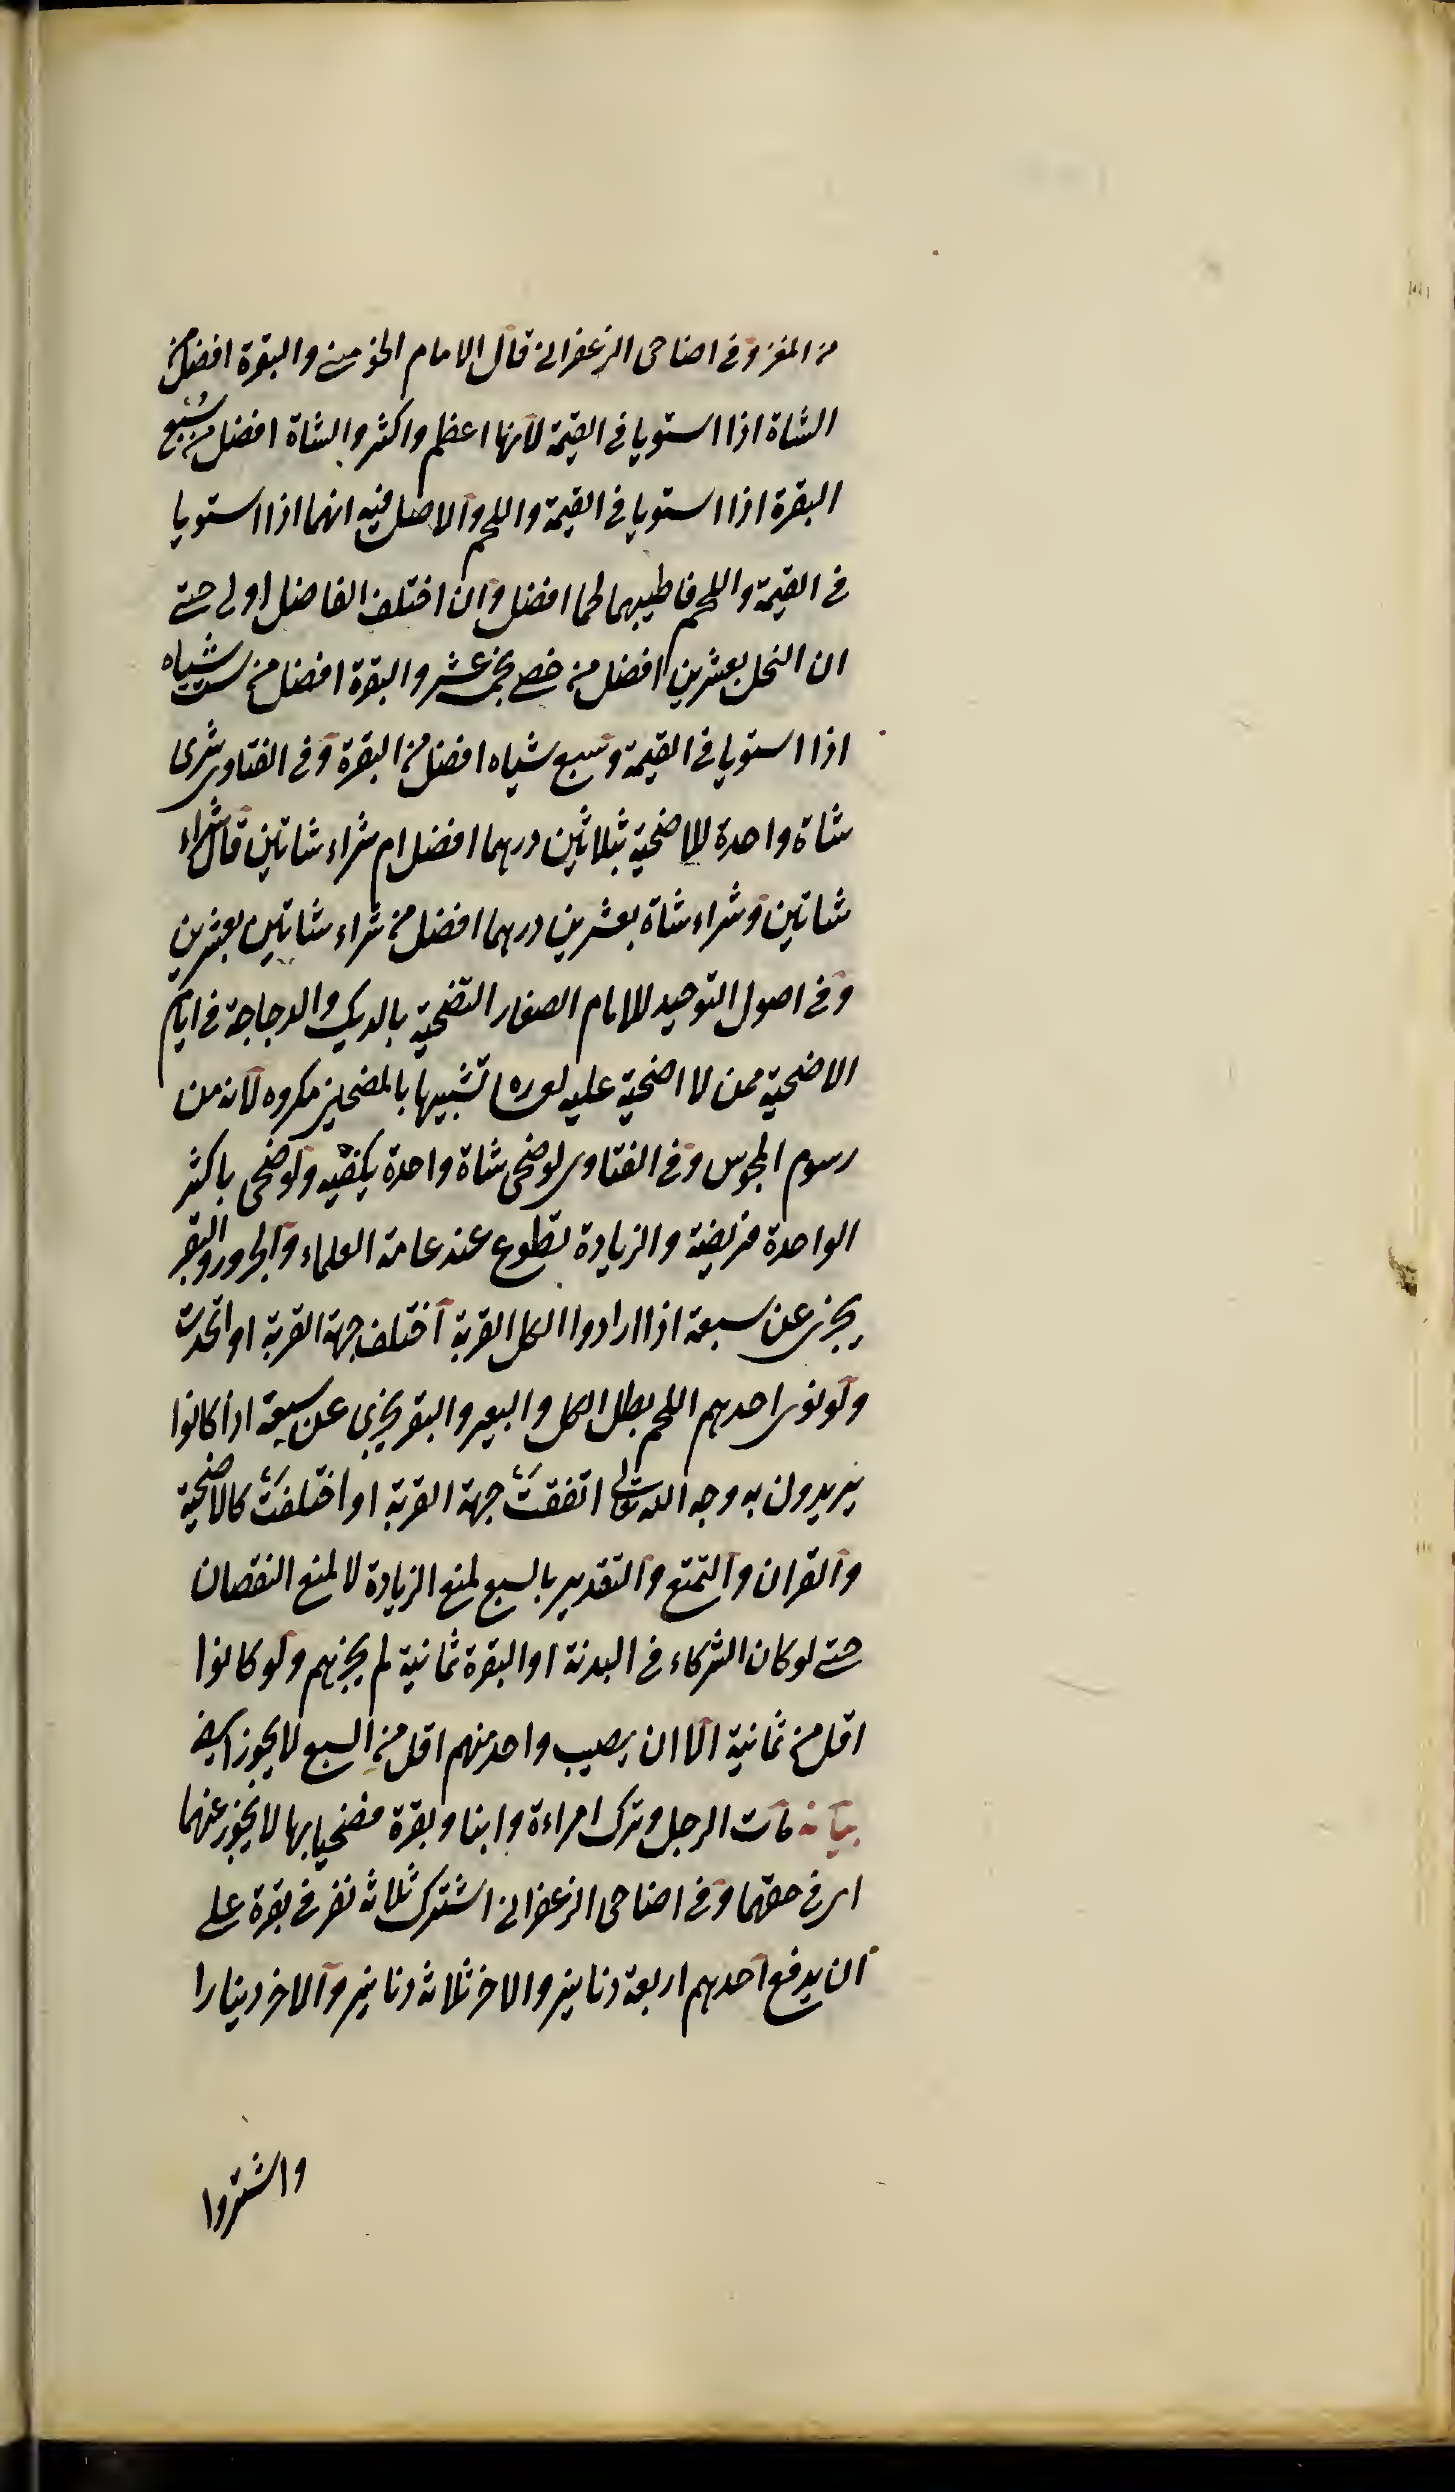 من المعز وفى اضاحى الزعفرانى قال الامام الخومينى والبقرة افضل من
الشاة اذا استويا فى القيمة لانها اعظم واكثر والشاة افضل من سُبع
البقرة اذا استويا فى القيمة واللحم والاصل فيه انهما اذا استويا
فى القيمة واللحم فاطيبهما لحما افضل وان اختلف الفاضل اولى حتى
ان الفحل بعشرين افضل من خصى بخمس عشر والبقرة افضل من ست شياه
اذا استويا فى القيمة وسبع شياه افضل من البقرة وفى الفتاوى شرى
شاة واحدة للاضحية بثلاثين درهما افضل ام شراء شاتين قال شراء
شاتين وشراء شاة بعشرين درهما افضل من شراء شاتين بعشرين
وفى اصول التوحيد للامام الصفار التضحية بالديك والدجاجة فى ايام
الاضحية ممن لا اضحية عليه تشبيها بالمضحين مكروه لانه من
رسوم المجوس وفى الفتاوى لو ضحى شاة واحدة يكفيه ولو ضحى باكثر
الواحدة فريضة والزيادة تطوع عند عامة العلماء والجزور والبقر
يجزى عن سبعة اذا ارادوا الكل القربة اختلف جهة القربة او اتحدت
ولو نوى احدهم اللحم بطل الكل والبعير والبقر يجزى عن سبعة اذا كانوا
يريدون به وجه الله تعالى اتفقت جهة القربة او اختلفت كالاضحية
والقران والتمتع والتقدير بالسبع لمنع الزيادة لا لمنع النقصان
حتى لو كان الشركاء فى البدنة او البقرة ثمانية لم يجزهم ولو كانوا
اقل من ثمانية الا ان يصيب واحد منهم اقل من السبع لا يجوز ايضا
بيانه مات الرجل وترك امراءة وابنا وبقرة فضحيا بها لا يجوز عنهما
اى فى حقهما وفى اضاحى الزعفرانى اشترك ثلاثة نفر فى بقرة على
ان يدفع احدهم اربعة دنانير والاخر ثلاثة دنانير والاخر دينارا
واشتروا